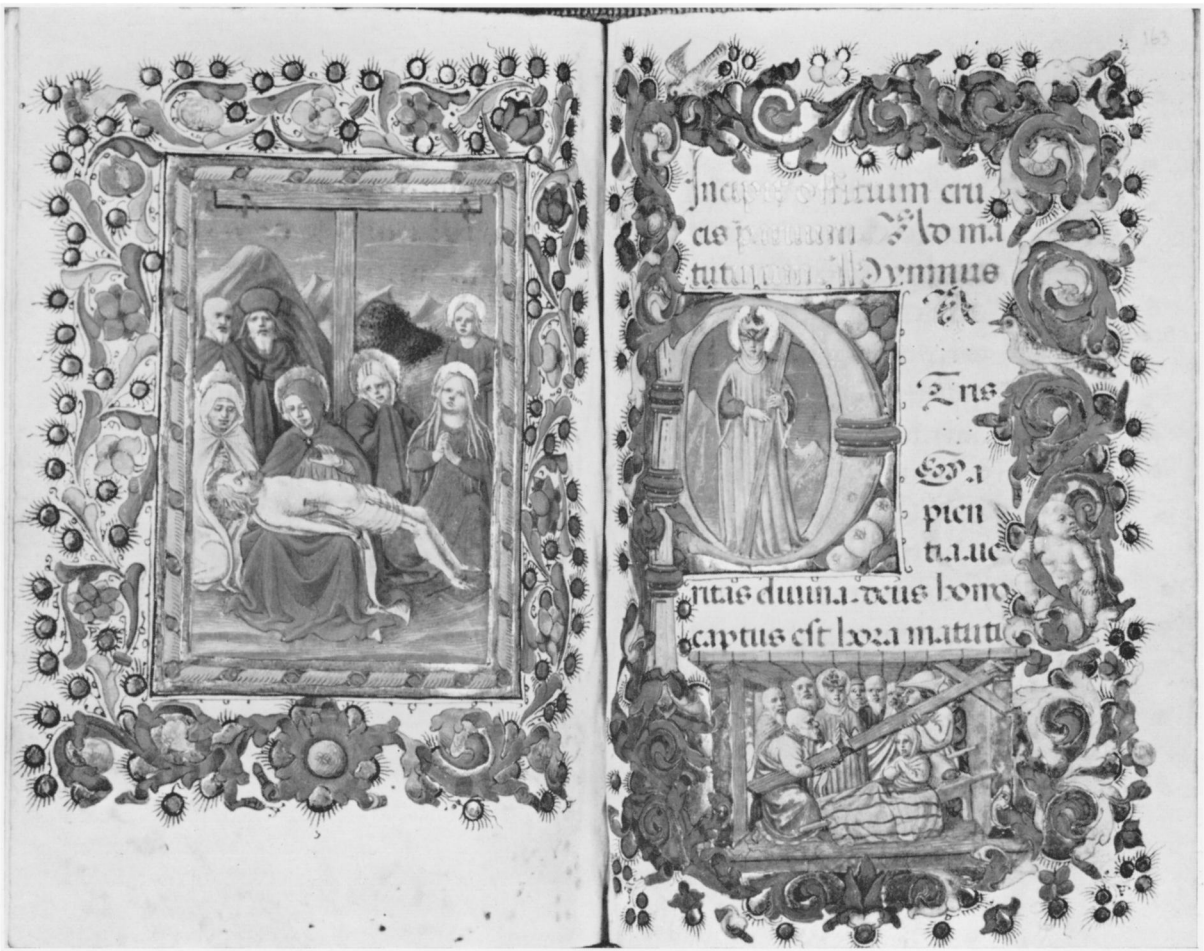 163
Incipit offitium cru
cis Ad ma
Hymnus
Tris
Sa
pien
tia ue
ritas diuina deus homo
captus est hora matuti